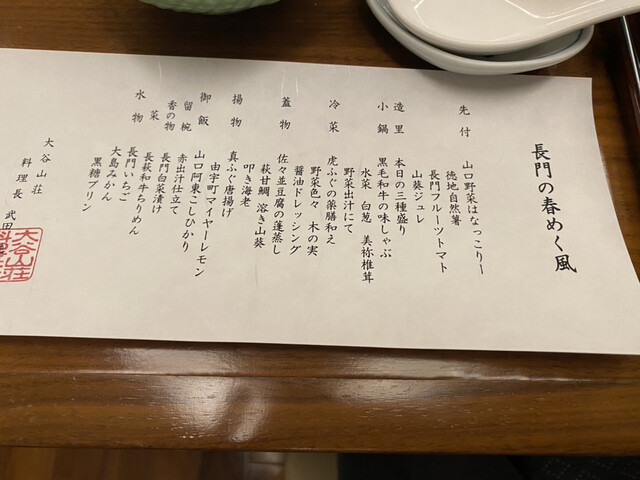 長門の春めく風
先付
山口野菜はなっこりー
徳地自然薯
長門フルーツトマト
山葵ジュレ
造里
本日の三種盛り
小鍋
黒毛和牛の味しゃぶ
水菜 白葱 美祢椎茸
野菜出汁にて
冷菜
虎ふぐの薬膳和え
野菜色々 木の実
醤油ドレッシング
蓋物
佐々並豆腐の蓬蒸し
萩甘鯛 溶き山葵
叩き海老
揚物
真ふぐ唐揚げ
由宇町マイヤーレモン
御飯
山口阿東こしひかり
留椀
赤出汁仕立て
香の物
長門白菜漬け
菜
長萩和牛ちりめん
水物
長門いちご
大島みかん
黒糖プリン
大谷山荘
料理長 武田
大谷山荘